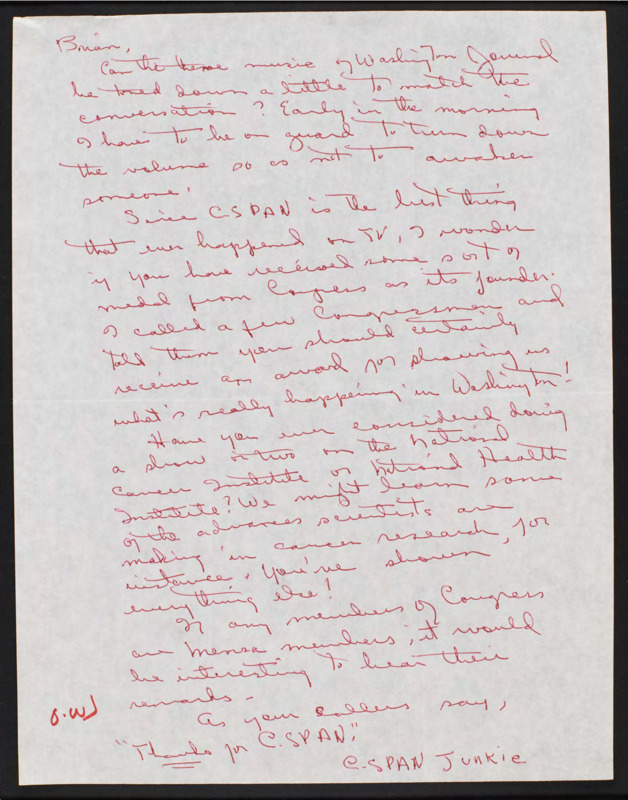 Brian,
Can the theme music of Washington Journal
be toned down a little to match the
conversation? Early in the morning
I have to be on guard to turn down
the volume so as not to awaken
someone.
Since C-SPAN is the best thing
that ever happened on TV, I wonder
if you have received some sort of
medal from Congress as its founder.
I called a few Congressmen and
told them you should certainly
receive an award for showing us
what's really happening in Washington!
Have you ever considered doing
a show or two on the National
Cancer Institute or National Health
Institute? We might learn some
of the advances scientists are
making in cancer research, for
instance. You've shown
everything else!
If any members of Congress
are Mensa members, it would
be interesting to hear their
remarks -
As your callers say,
"Thanks for C-SPAN."
C-SPAN JUNKIE